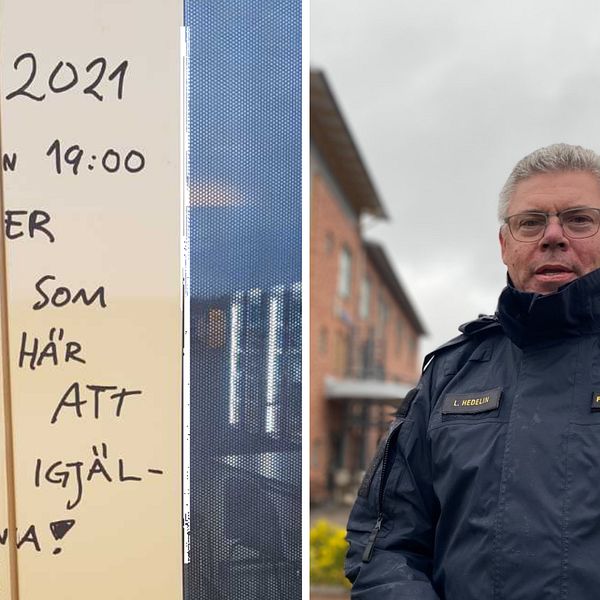 2021
N 19:00
ER
SOM
HÄR
ATT
IGJÄL-
NA!
L. HEDELIN
P